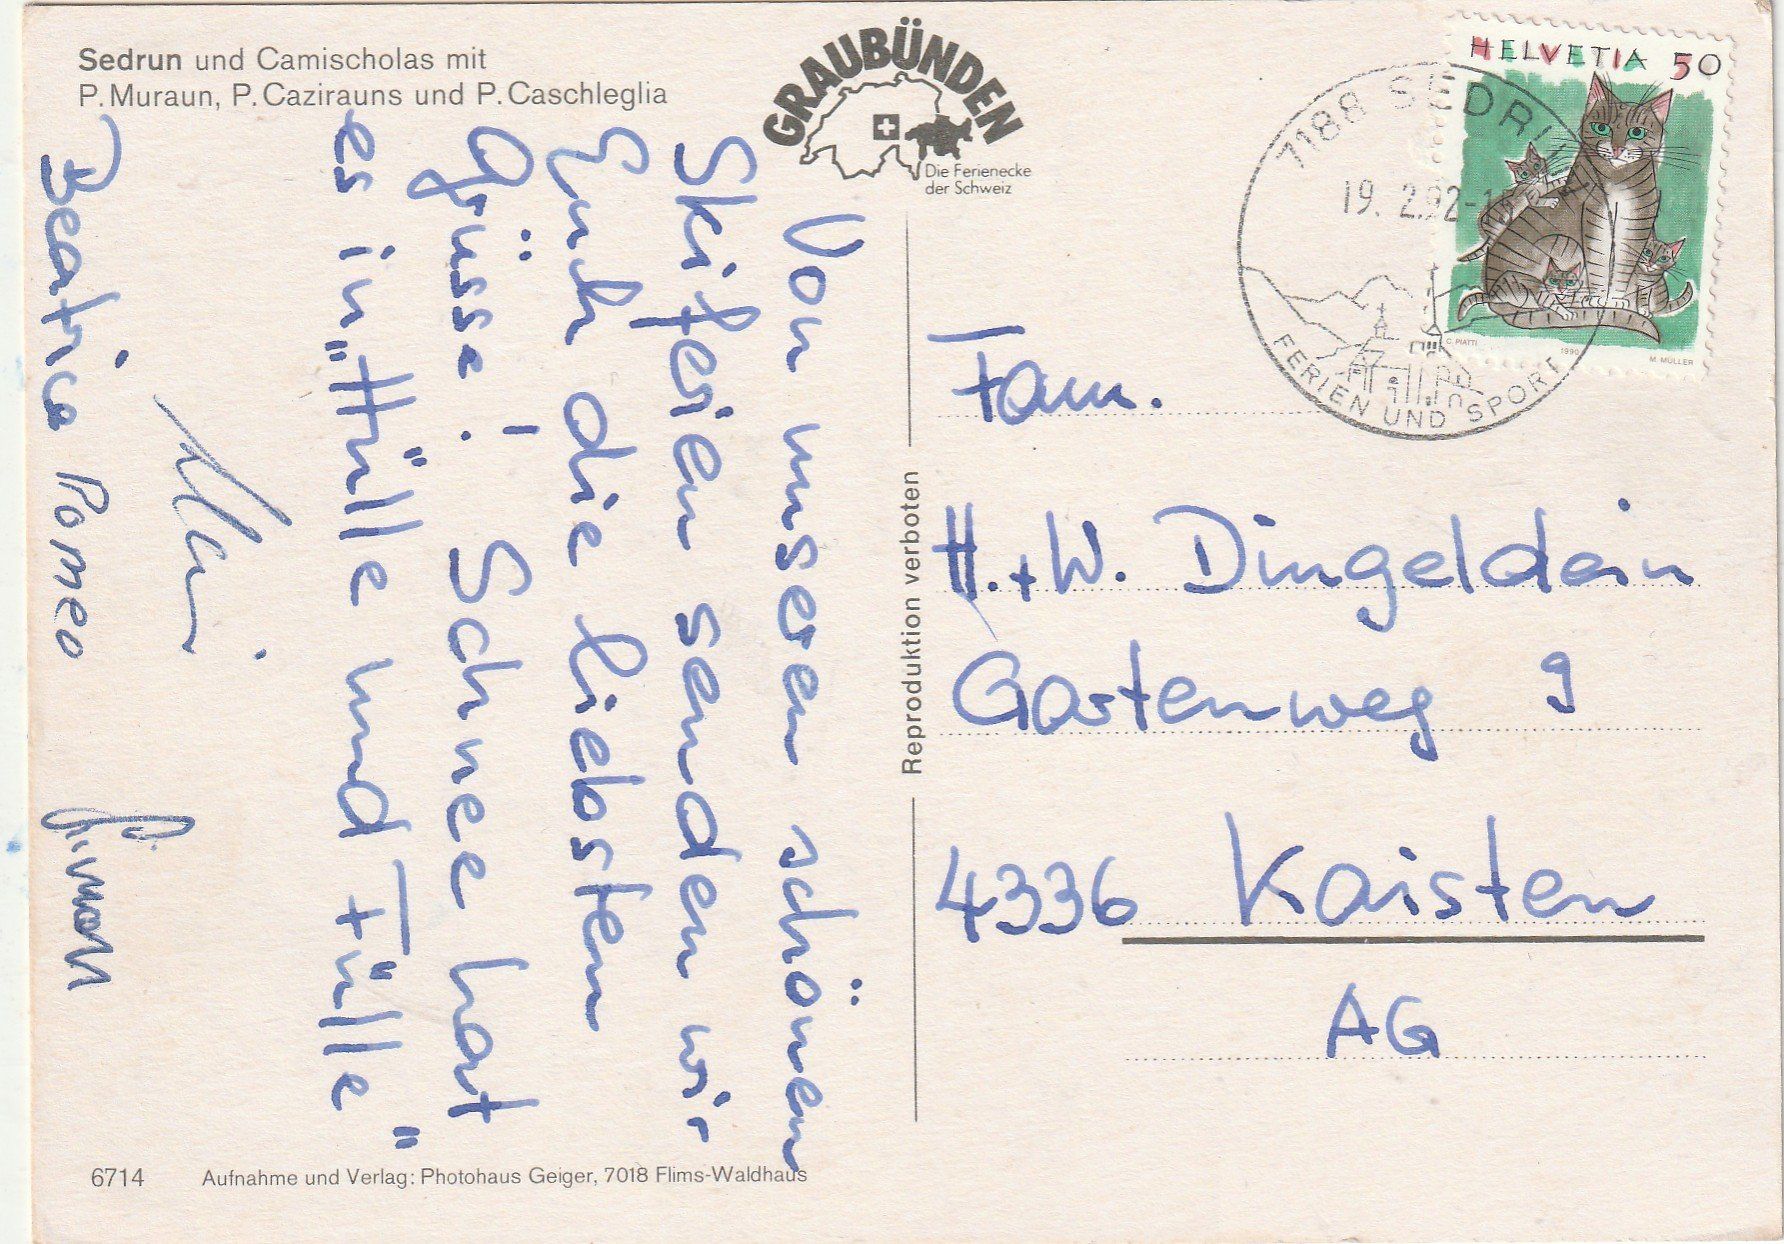 Sedrun und Camischolas mit
P. Muraun, P. Cazirauns und P. Caschleglia
GRAUBÜNDEN
Die Ferienecke
der Schweiz
HELVETIA 50
C. PIATTI 1990 M. MÜLLER
7188 SEDRUN
19. 2.92-1
FERIEN UND SPORT
Von unseren schönen
Skiferien senden wir
Euch die liebsten
Grüsse! Schnee hat
es in "Hülle und Fülle"
Beatrice Romeo Simon
Reproduktion verboten
Fam.
H. + W. Dingeldein
Gartenweg 9
4336 Kaisten
AG
6714 Aufnahme und Verlag: Photohaus Geiger, 7018 Flims-Waldhaus